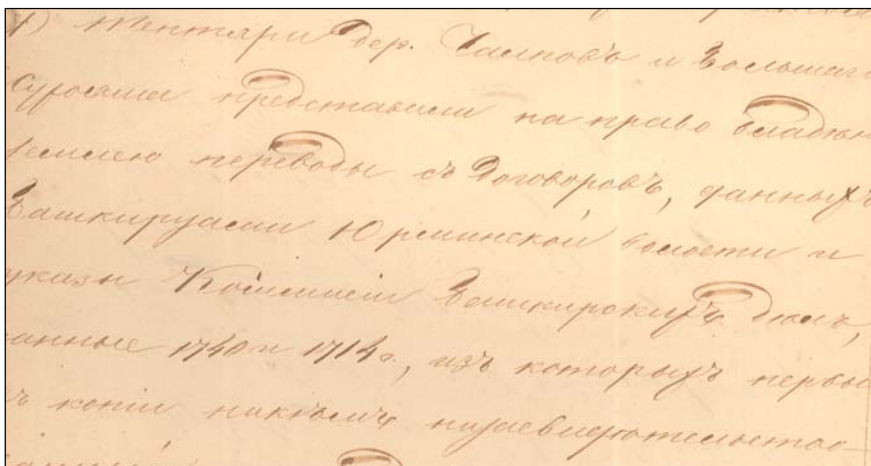 Тептяри дер. Чалповъ и Большаго
представили на право владѣн
землею переводы съ договоровъ, данныхъ
Башкирцами Юрминской волости и
указы Коммисіи Башкирскихъ дѣлъ,
данные 1740 и 1714 г., изъ которыхъ первы
въ копіи никѣмъ незасвидѣтельство-